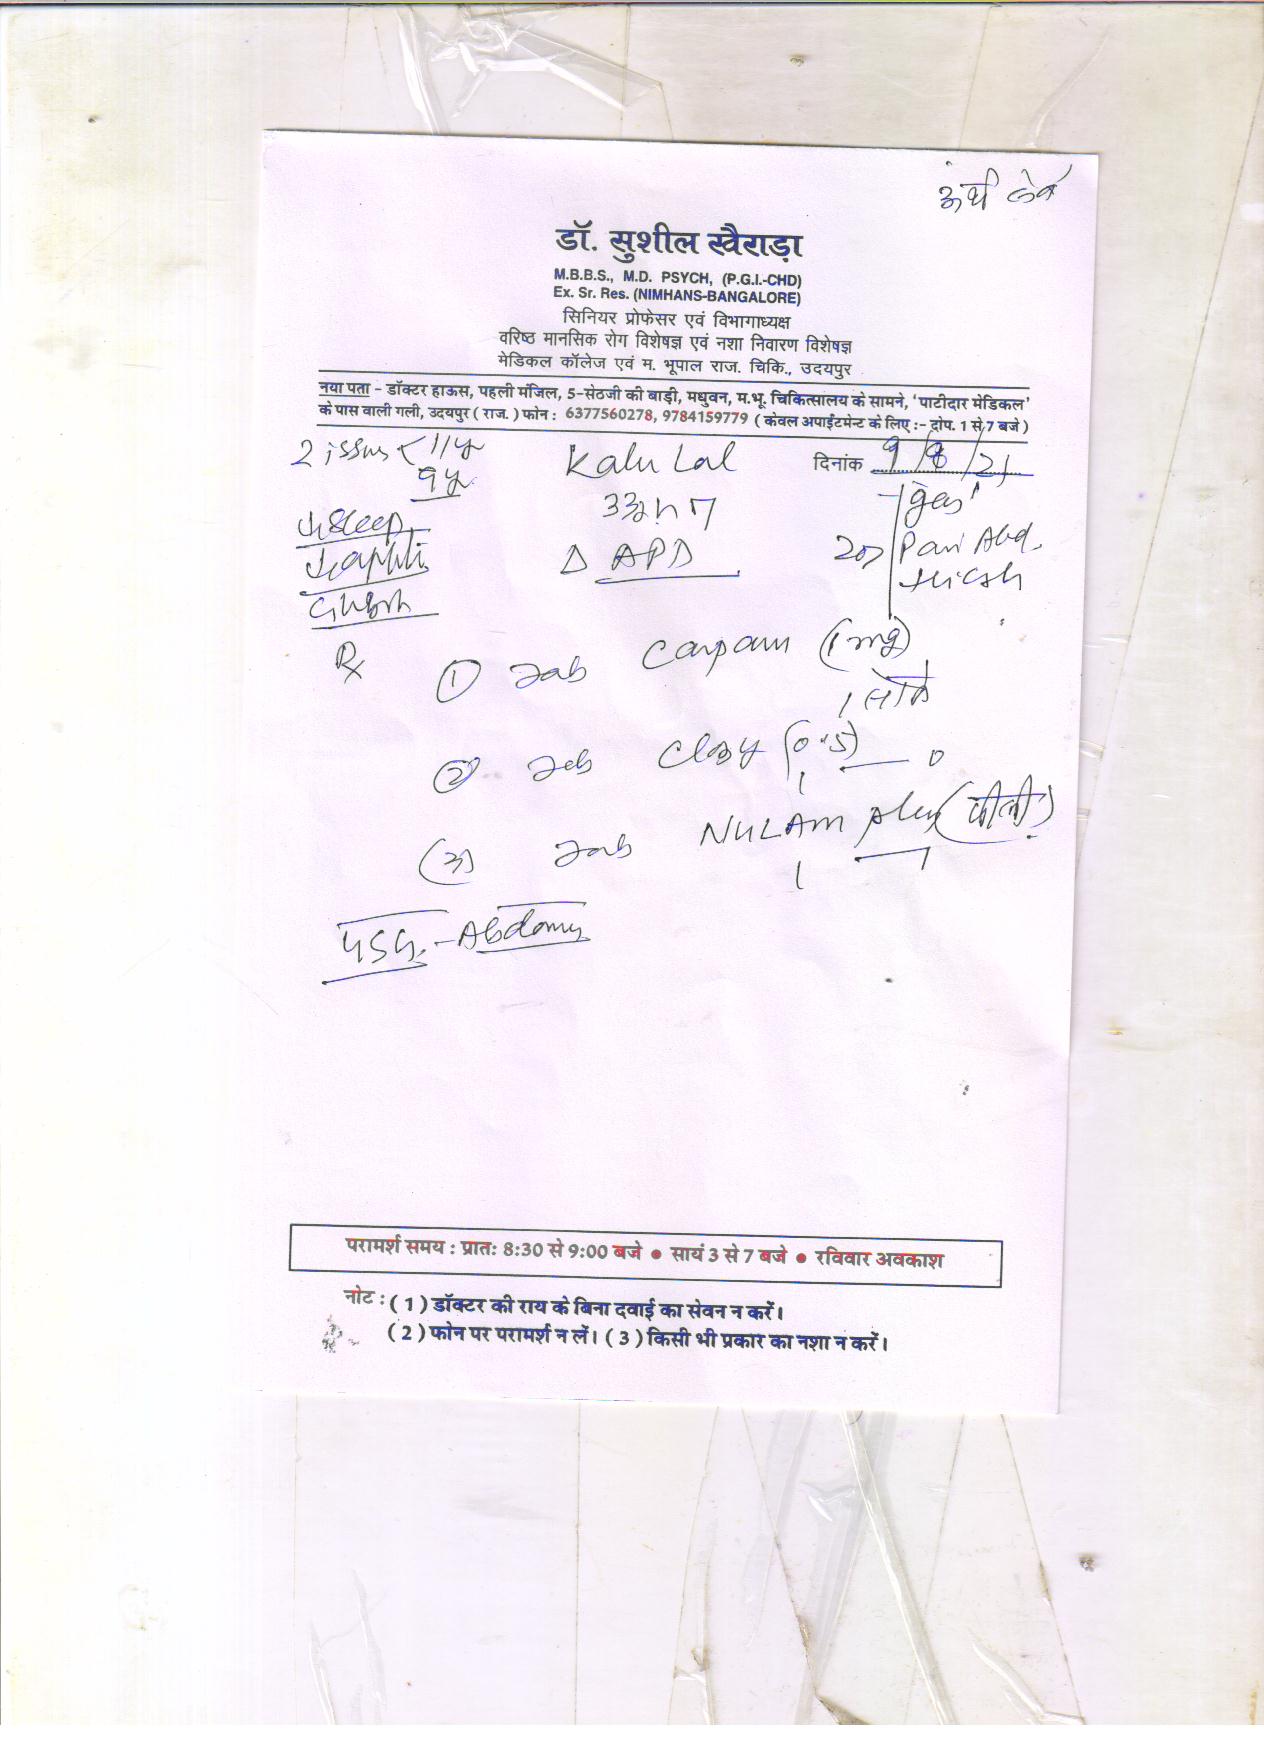 डॉ. सुशील खैराड़ा
M.B.B.S., M.D. PSYCH, (P.G.I.-CHD)
Ex. Sr. Res. (NIMHANS-BANGALORE)
सिनियर प्रोफेसर एवं विभागाध्यक्ष
वरिष्ठ मानसिक रोग विशेषज्ञ एवं नशा निवारण विशेषज्ञ
मेडिकल कॉलेज एवं म. भूपाल राज. चिकि., उदयपुर
नया पता - डॉक्टर हाऊस, पहली मंजिल, 5-सेठजी की बाड़ी, मधुवन, म.भू. चिकित्सालय के सामने, 'पाटीदार मेडिकल'
के पास वाली गली, उदयपुर ( राज. ) फोन : 6377560278, 9784159779 ( केवल अपाईंटमेन्ट के लिए :- दोप. 1 से 7 बजे )
2 issues < 11y Kalu Lal दिनांक 9/8/21
9y
sleep gas
Δ APD Pain Abd.
Rx
① Tab (1 mg)
② Tab (0.5) 0
(3) Tab NULAM
USG - Abdomen
परामर्श समय : प्रातः 8:30 से 9:00 बजे ● सायं 3 से 7 बजे ● रविवार अवकाश
नोट : ( 1 ) डॉक्टर की राय के बिना दवाई का सेवन न करें।
( 2 ) फोन पर परामर्श न लें। ( 3 ) किसी भी प्रकार का नशा न करें।